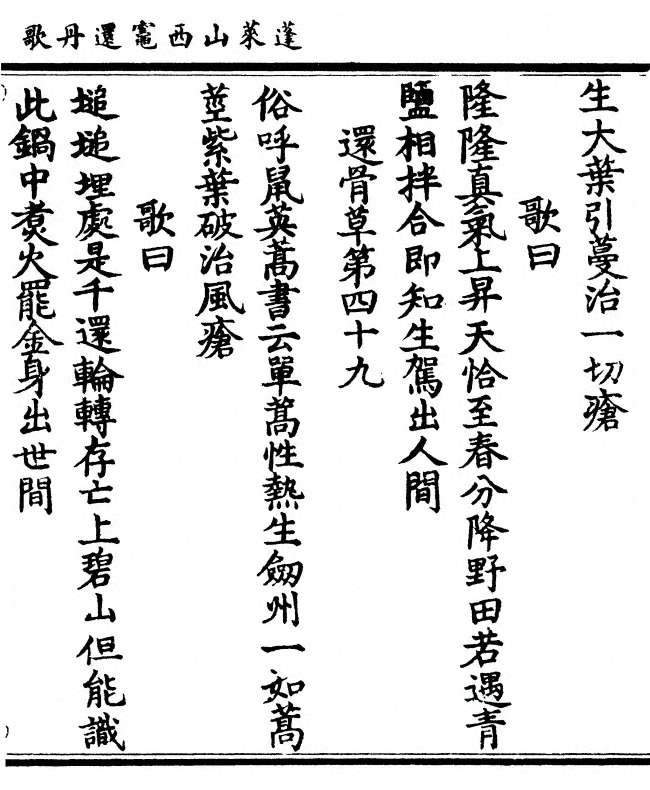 蓬萊山西竈還丹歌
生大葉引蔓治一切瘡
歌曰
隆隆真氣上昇天恰至春分降野田若遇青
鹽相拌合即知生駕出人間
還骨草第四十九
俗呼鼠英蒿書云單蒿性熱生劔州一如蒿
莖紫葉破治風瘡
歌曰
塠塠埋處是千還輪轉存亡上碧山但能識
此鍋中煑火罷金身出世間